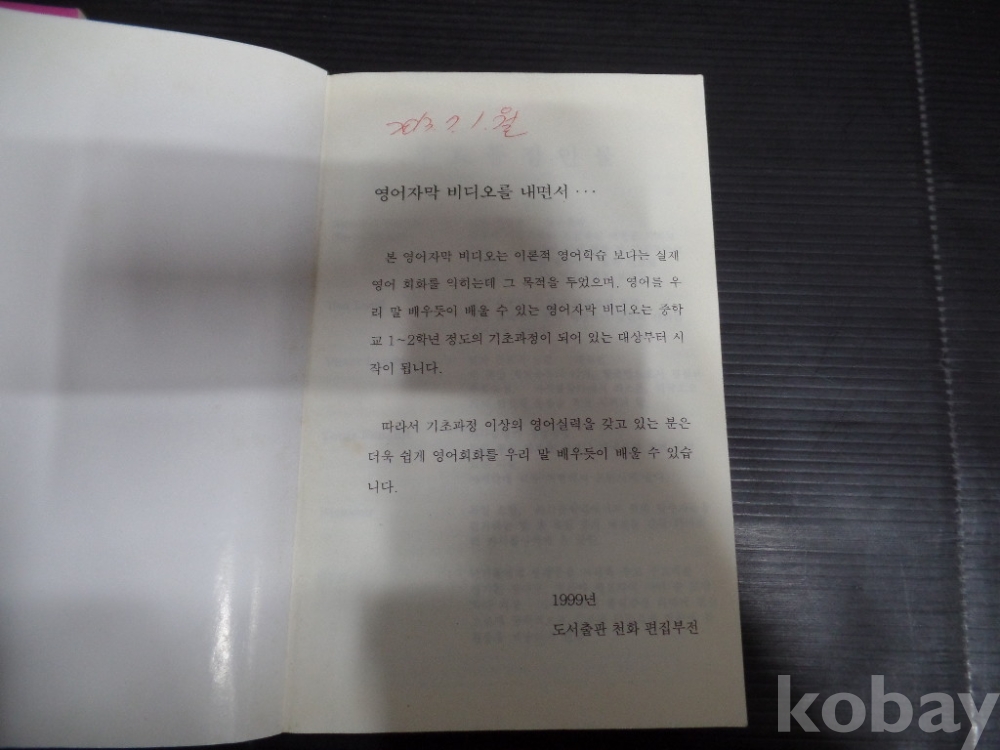 2013. 7. 1. 월
영어자막 비디오를 내면서 ···
본 영어자막 비디오는 이론적 영어학습 보다는 실재
영어 회화를 익히는데 그 목적을 두었으며, 영어를 우
리 말 배우듯이 배울 수 있는 영어자막 비디오는 중학
교 1~2학년 정도의 기초과정이 되어 있는 대상부터 시
작이 됩니다.
따라서 기초과정 이상의 영어실력을 갖고 있는 분은
더욱 쉽게 영어회화를 우리 말 배우듯이 배울 수 있습
니다.
1999년
도서출판 천화 편집부전
kobay